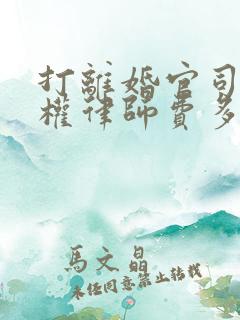 打離婚官司
權律師費多
馬文晶
未經同意禁止轉載